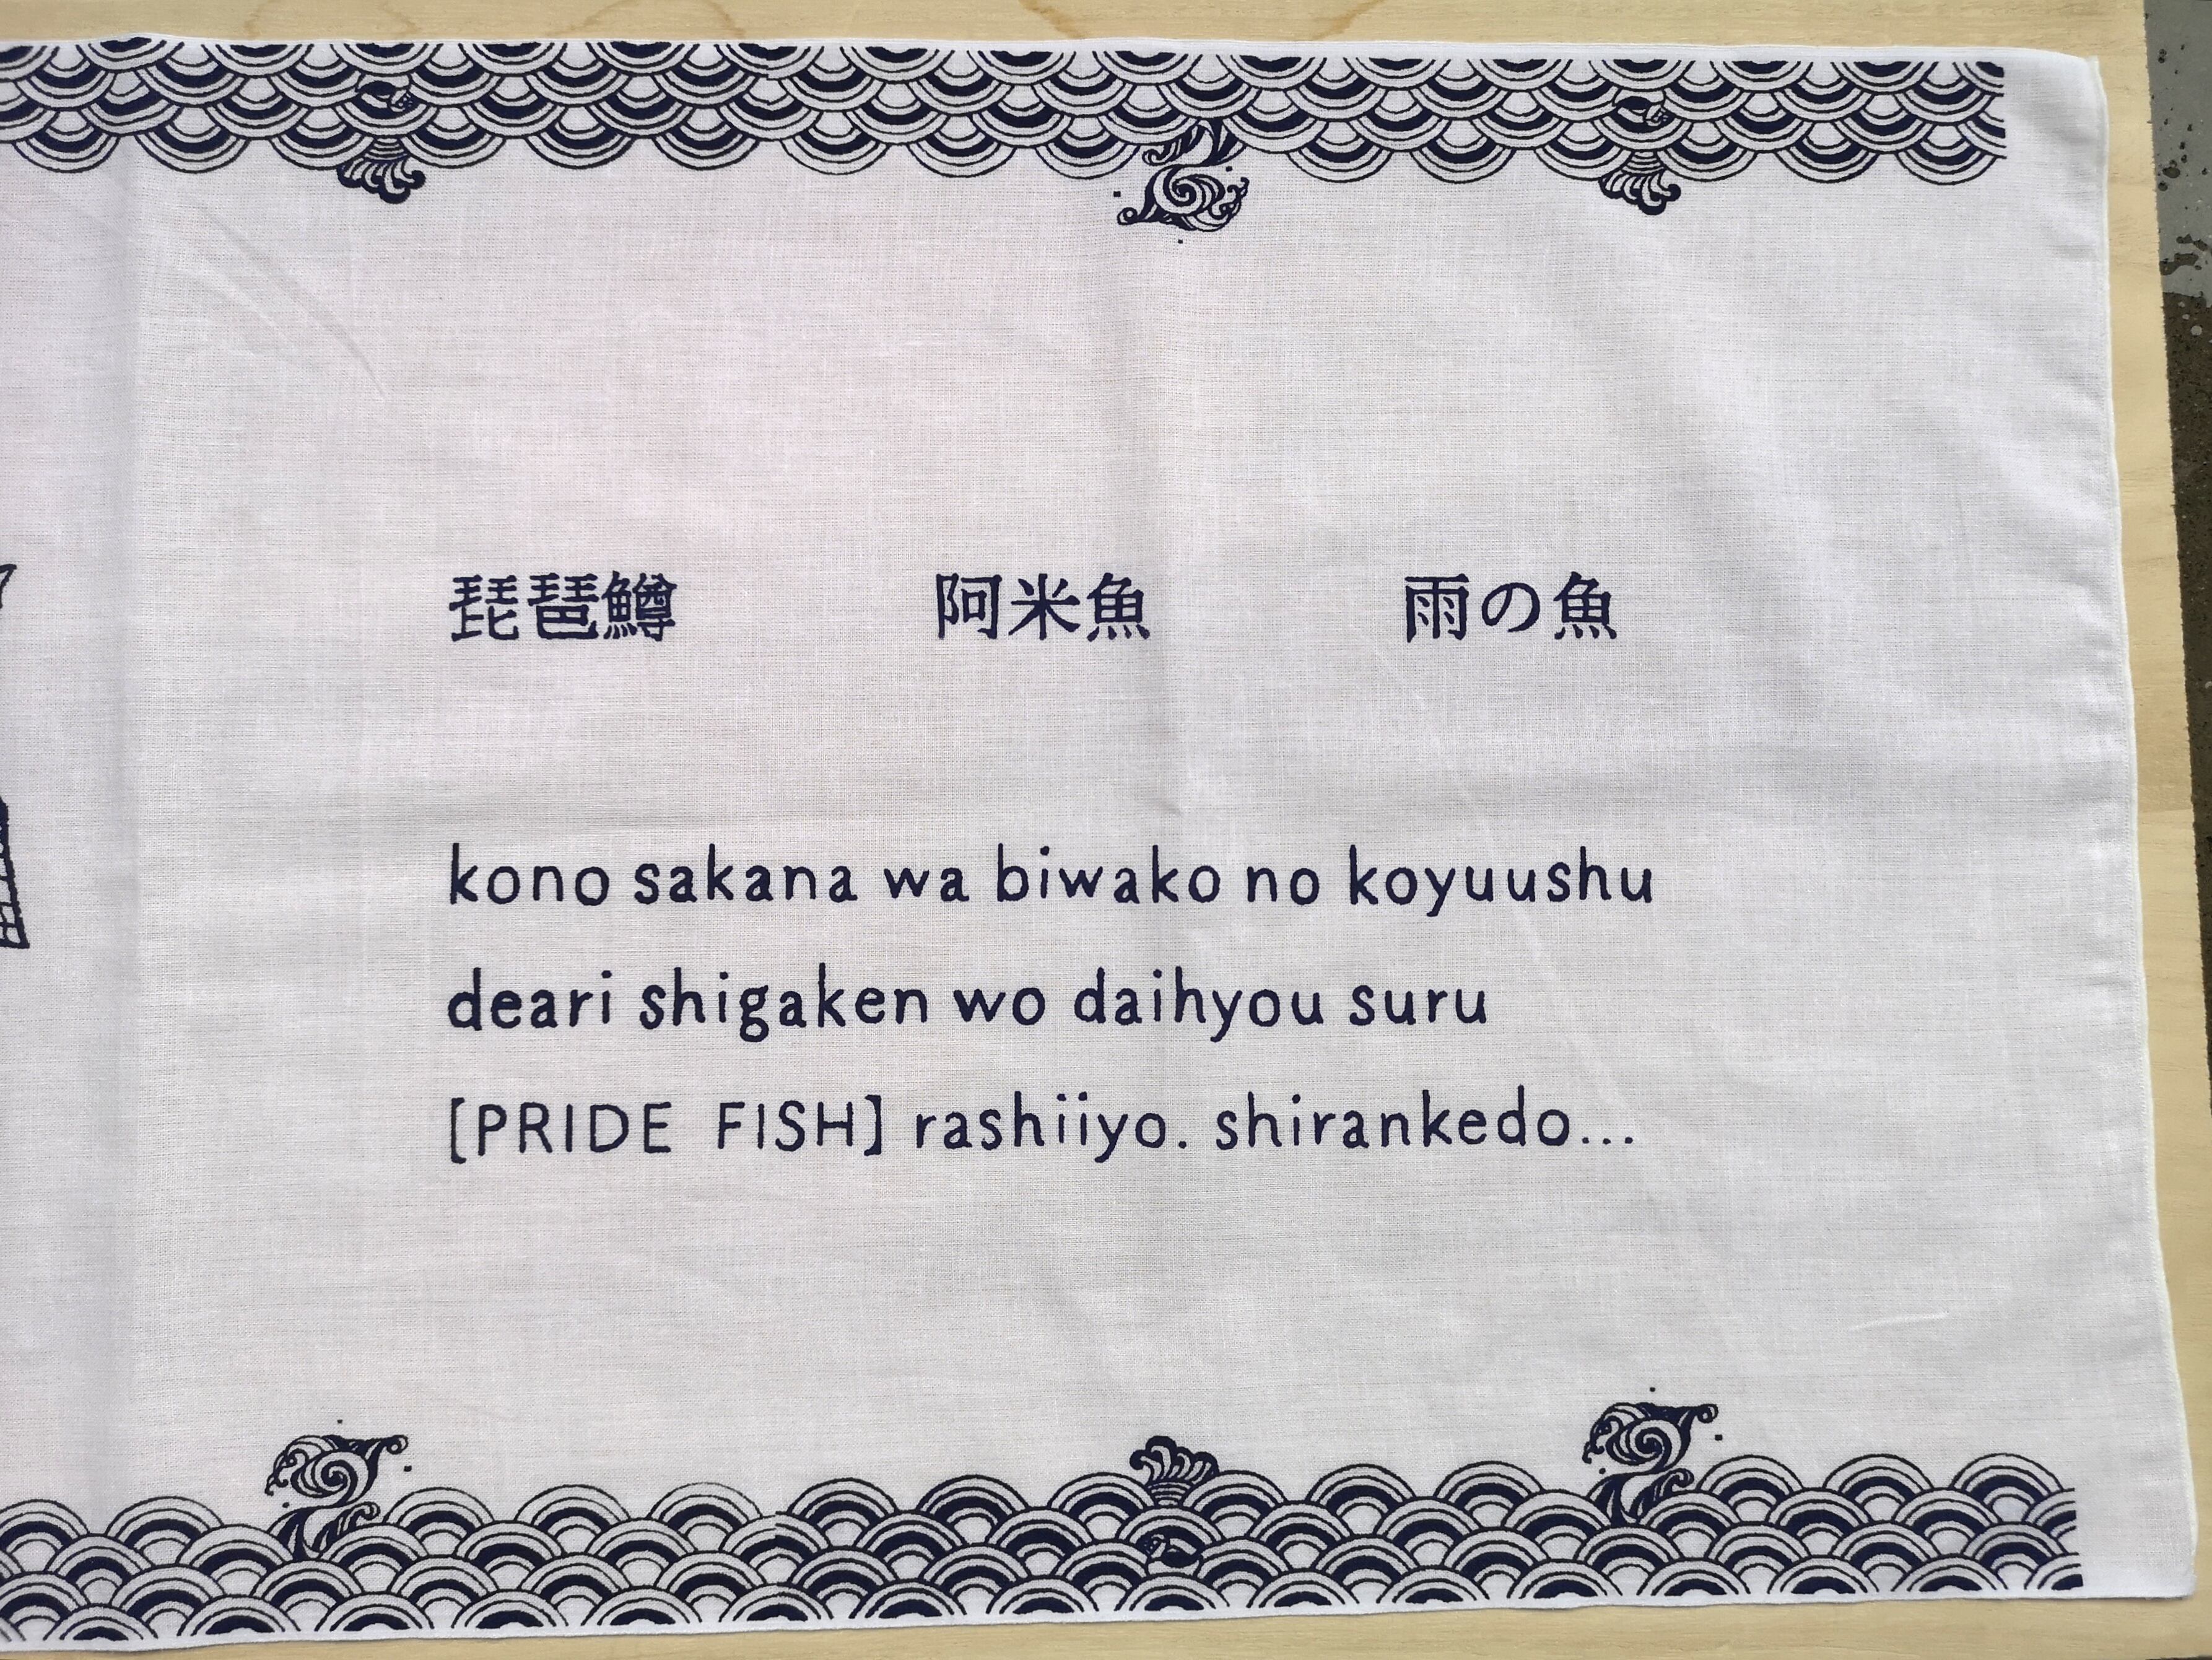 琵琶鱒 阿米魚 雨の魚
kono sakana wa biwako no koyuushu
deari shigaken wo daihyou suru
[PRIDE FISH] rashiiyo. shirankedo...